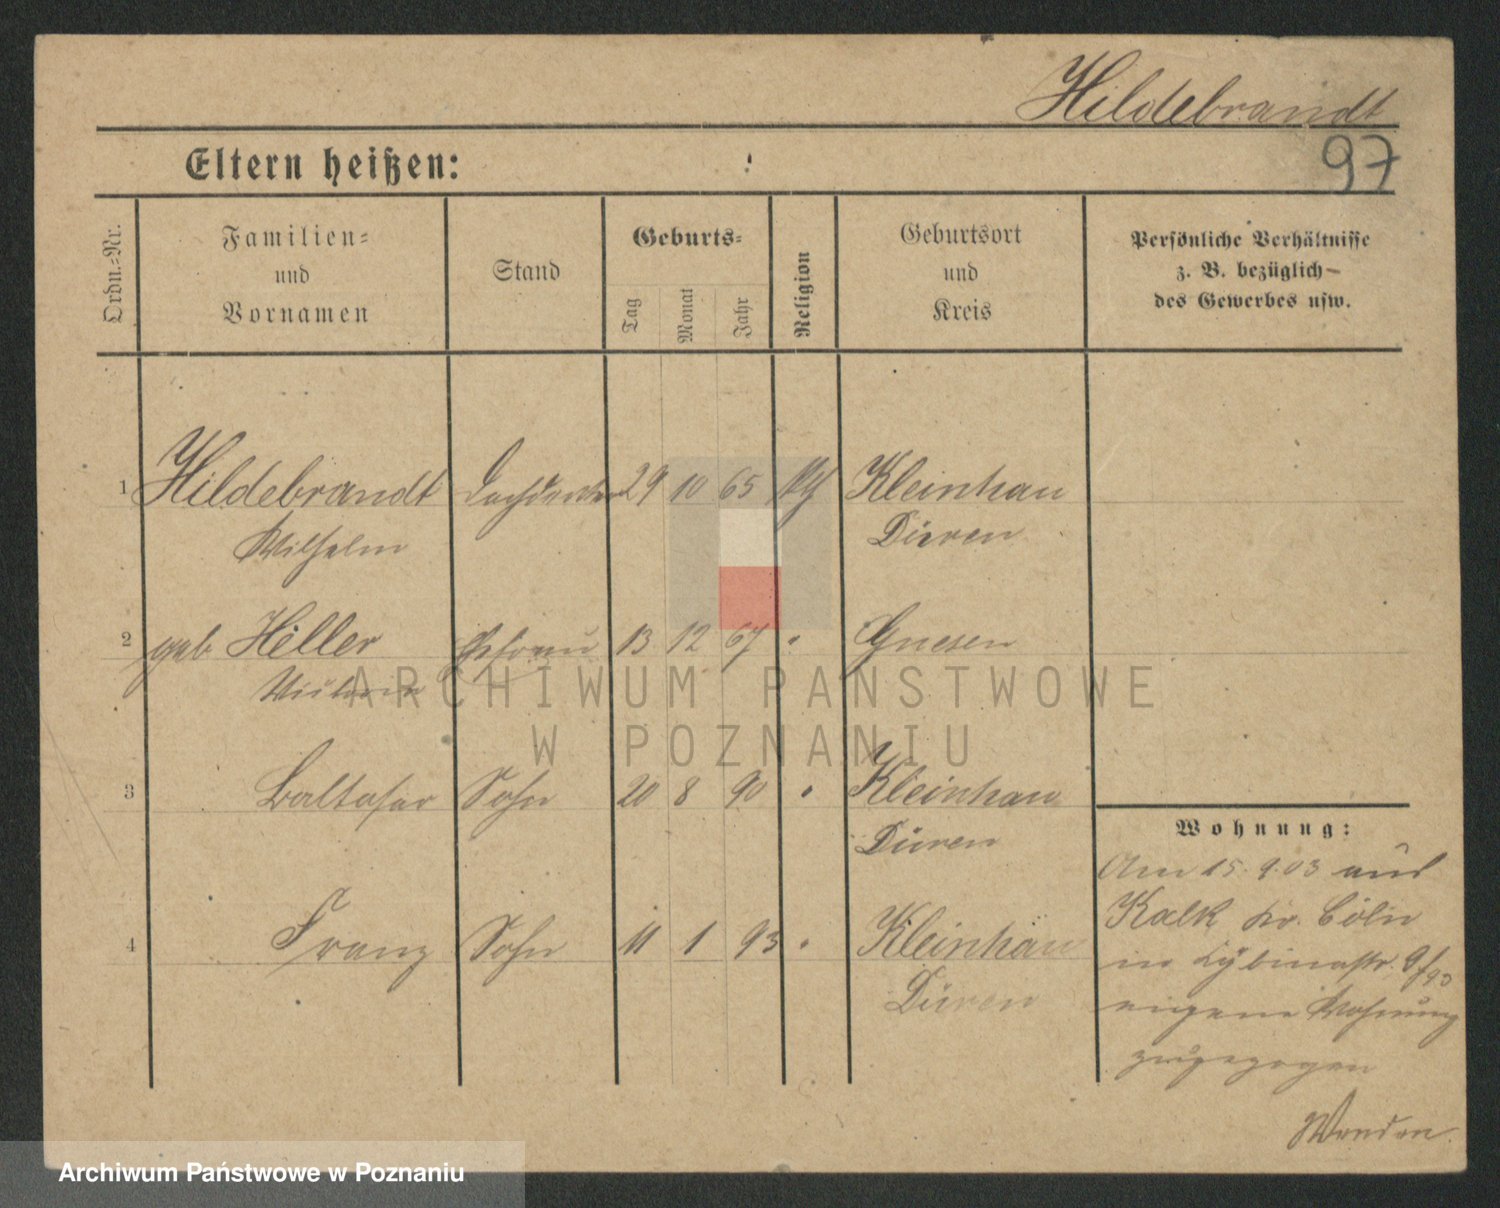 Hildebrandt
97
Eltern heißen:
Ordn.-Nr.
Familien-
und
Vornamen
Stand
Geburts-
Tag
Monat
Jahr
Religion
Geburtsort
und
Kreis
Persönliche Verhältnisse
z. B. bezüglich
des Gewerbes usw.
1 Hildebrandt Dachdecker 29 10 65 Kleinhau
Wilhelm Düren
2 geb Heller Ehefrau 13 12 67 " Gnesen
ARCHIWUM PAŃSTWOWE
W POZNANIU
3 Baltasar Sohn 20 8 90 " Kleinhau
Düren
4 Franz Sohn 11 1 93 " Kleinhau
Düren
Wohnung:
Am 15.9.03 aus
Kalk Kr. Cöln
in Lybinastr. 9/
eigene Wohnung
zugezogen
Archiwum Państwowe w Poznaniu